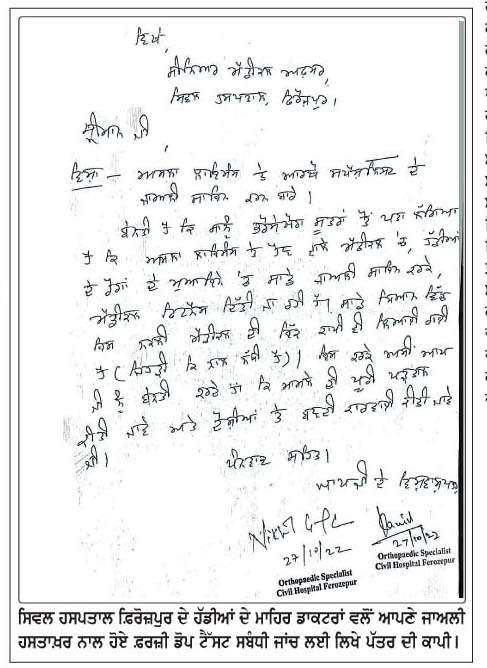 ਵਿਖੇ,
ਸੀਨੀਅਰ ਮੈਡੀਕਲ ਅਫਸਰ,
ਸਿਵਲ ਹਸਪਤਾਲ, ਫਿਰੋਜ਼ਪੁਰ।
ਸ੍ਰੀਮਾਨ ਜੀ
ਵਿਸ਼ਾ – ਅਸਲਾ ਲਾਇਸੰਸ ਤੇ ਆਰਥੋ ਸਪੈਸ਼ਲਿਸਟ ਦੇ
ਜਾਅਲੀ ਸਾਇਨ ਕਰਨ ਬਾਰੇ।
ਬੇਨਤੀ ਹੈ ਕਿ ਸਾਨੂੰ ਭਰੋਸੇਯੋਗ ਸੂਤਰਾਂ ਤੋਂ ਪਤਾ ਲੱਗਿਆ
ਹੈ ਕਿ ਅਸਲਾ ਲਾਇਸੰਸ ਦੇ ਹੋਣ ਵਾਲੇ ਮੈਡੀਕਲ 'ਚ, ਹੱਡੀਆਂ
ਦੇ ਰੋਗਾਂ ਦੇ ਮੁਆਇਨੇ 'ਚ ਸਾਡੇ ਜਾਅਲੀ ਸਾਇਨ ਕਰਕੇ,
ਮੈਡੀਕਲ ਫਿਟਨੈਸ ਦਿੱਤੀ ਜਾ ਰਹੀ ਹੈ। ਸਾਡੇ ਧਿਆਨ ਵਿੱਚ
ਇਸ ਨਕਲੀ ਮੈਡੀਕਲ ਦੀ ਇੱਕ ਕਾਪੀ ਵੀ ਲਿਆਂਦੀ ਗਈ
ਹੈ (ਜਿਹੜੀ ਕਿ ਨਾਲ ਨੱਥੀ ਹੈ)। ਇਸ ਕਰਕੇ ਅਸੀਂ ਆਪ
ਜੀ ਨੂੰ ਬੇਨਤੀ ਕਰਦੇ ਹਾਂ ਕਿ ਮਾਮਲੇ ਦੀ ਪੂਰੀ ਪੜਤਾਲ
ਕੀਤੀ ਜਾਵੇ ਅਤੇ ਦੋਸ਼ੀਆਂ ਤੇ ਬਣਦੀ ਕਾਰਵਾਈ ਕੀਤੀ ਜਾਵੇ
ਜੀ।
ਧੰਨਵਾਦ ਸਹਿਤ।
ਆਪਜੀ ਦੇ ਵਿਸ਼ਵਾਸਪਾਤਰ
27/10/22
27/10/22
Orthopaedic Specialist
Civil Hospital Ferozepur
Orthopaedic Specialist
Civil Hospital Ferozepur
ਸਿਵਲ ਹਸਪਤਾਲ ਫ਼ਿਰੋਜ਼ਪੁਰ ਦੇ ਹੱਡੀਆਂ ਦੇ ਮਾਹਿਰ ਡਾਕਟਰਾਂ ਵਲੋਂ ਆਪਣੇ ਜਾਅਲੀ
ਹਸਤਾਖ਼ਰ ਨਾਲ ਹੋਏ ਫ਼ਰਜ਼ੀ ਡੋਪ ਟੈੱਸਟ ਸਬੰਧੀ ਜਾਂਚ ਲਈ ਲਿਖੇ ਪੱਤਰ ਦੀ ਕਾਪੀ।